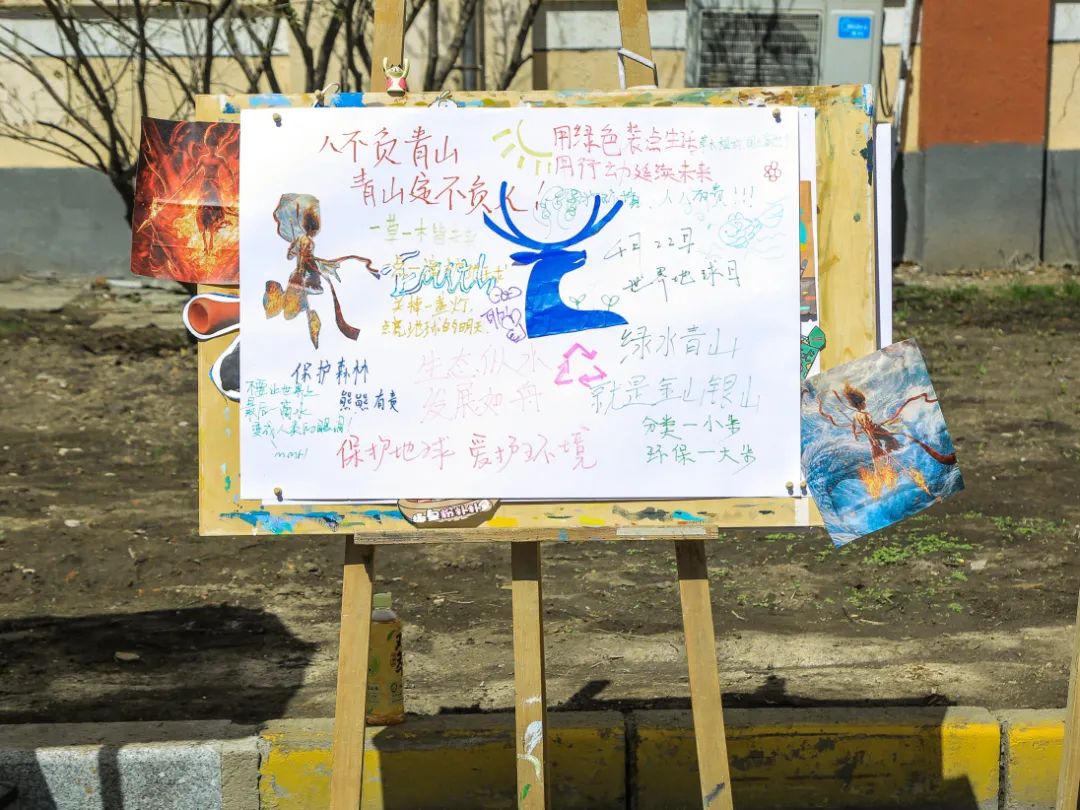 人不负青山
青山定不负人!
用绿色装点生活
用行动延续未来
人人有责!!!
一草一木皆
4月22日
世界地球日
关掉一盏灯,
点亮地球的明天
保护森林
熊熊有责
不要让世界上
最后一滴水
变成人类的眼泪!
生态似水
发展如舟
绿水青山
就是金山银山
分类一小步
环保一大步
保护地球 爱护环境